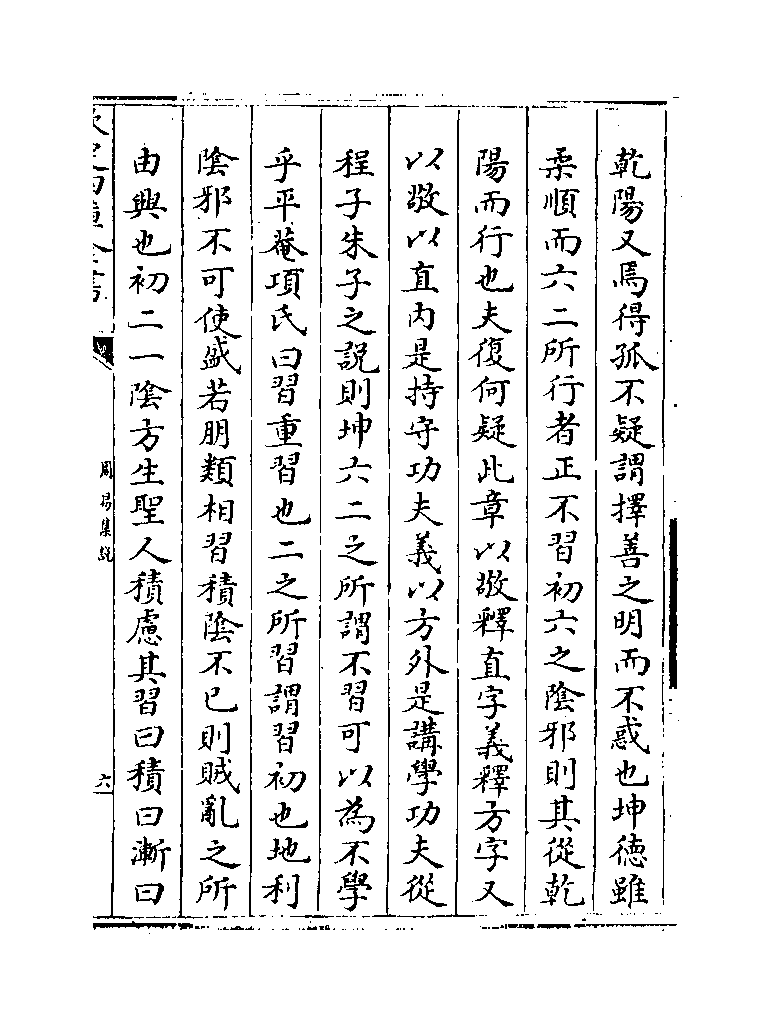 乾陽又焉得孤不疑謂擇善之明而不惑也坤徳雖
柔順而六二所行者正不習初六之陰邪則其從乾
陽而行也夫復何疑此章以敬釋直字義釋方字又
以敬以直内是持守功夫義以方外是講學功夫從
程子朱子之説則坤六二之所謂不習可以為不學
乎平菴項氏曰習重習也二之所習謂習初也地利
陰邪不可使盛若朋類相習積陰不已則賊亂之所
由興也初二一陰方生聖人積慮其習曰積曰漸曰
欽定四庫全書
周易集説
六